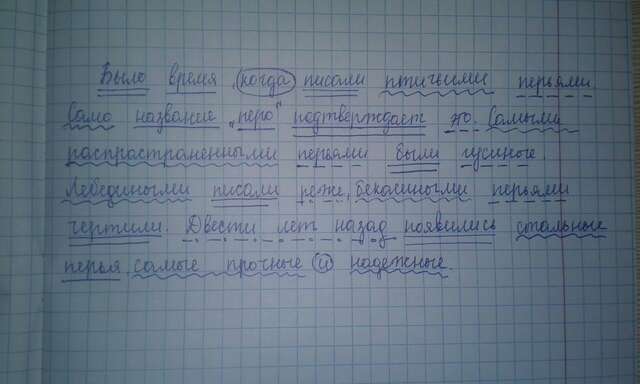 Было время, когда писали птичьими перьями.
Само название „перо" подтверждает это. Самыми
распространенными перьями были гусиные.
Лебедиными писали реже, бекасиными перьями
чертили. Двести лет назад появились стальные
перья, самые прочные и надежные.